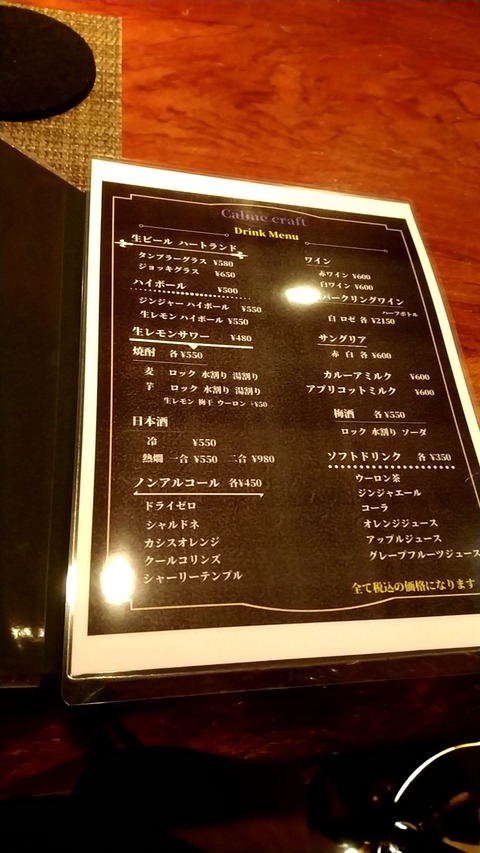 Calme craft
Drink Menu
生ビール ハートランド
タンブラーグラス ¥580
ジョッキグラス ¥650
ハイボール ¥500
ジンジャー ハイボール ¥550
生レモン ハイボール ¥550
生レモンサワー ¥480
焼酎 各¥550
麦 ロック 水割り 湯割り
芋 ロック 水割り 湯割り
生レモン 梅干 ウーロン +¥50
日本酒
冷 ¥550
熱燗 一合 ¥550 二合 ¥980
ノンアルコール 各¥450
ドライゼロ
シャルドネ
カシスオレンジ
クールコリンズ
シャーリーテンプル
ワイン
赤ワイン ¥600
白ワイン ¥600
パークリングワイン
ハーフボトル
白 ロゼ 各 ¥2150
サングリア
赤 白 各 ¥600
カルーアミルク ¥600
アプリコットミルク ¥600
梅酒 各¥550
ロック 水割り ソーダ
ソフトドリンク 各 ¥350
ウーロン茶
ジンジャエール
コーラ
オレンジジュース
アップルジュース
グレープフルーツジュース
全て税込の価格になります